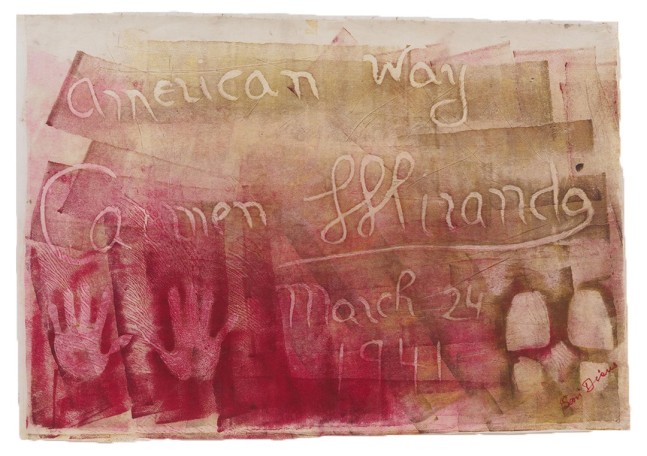 American Way
Carmen Miranda
March 24
1941
Sari Dienes